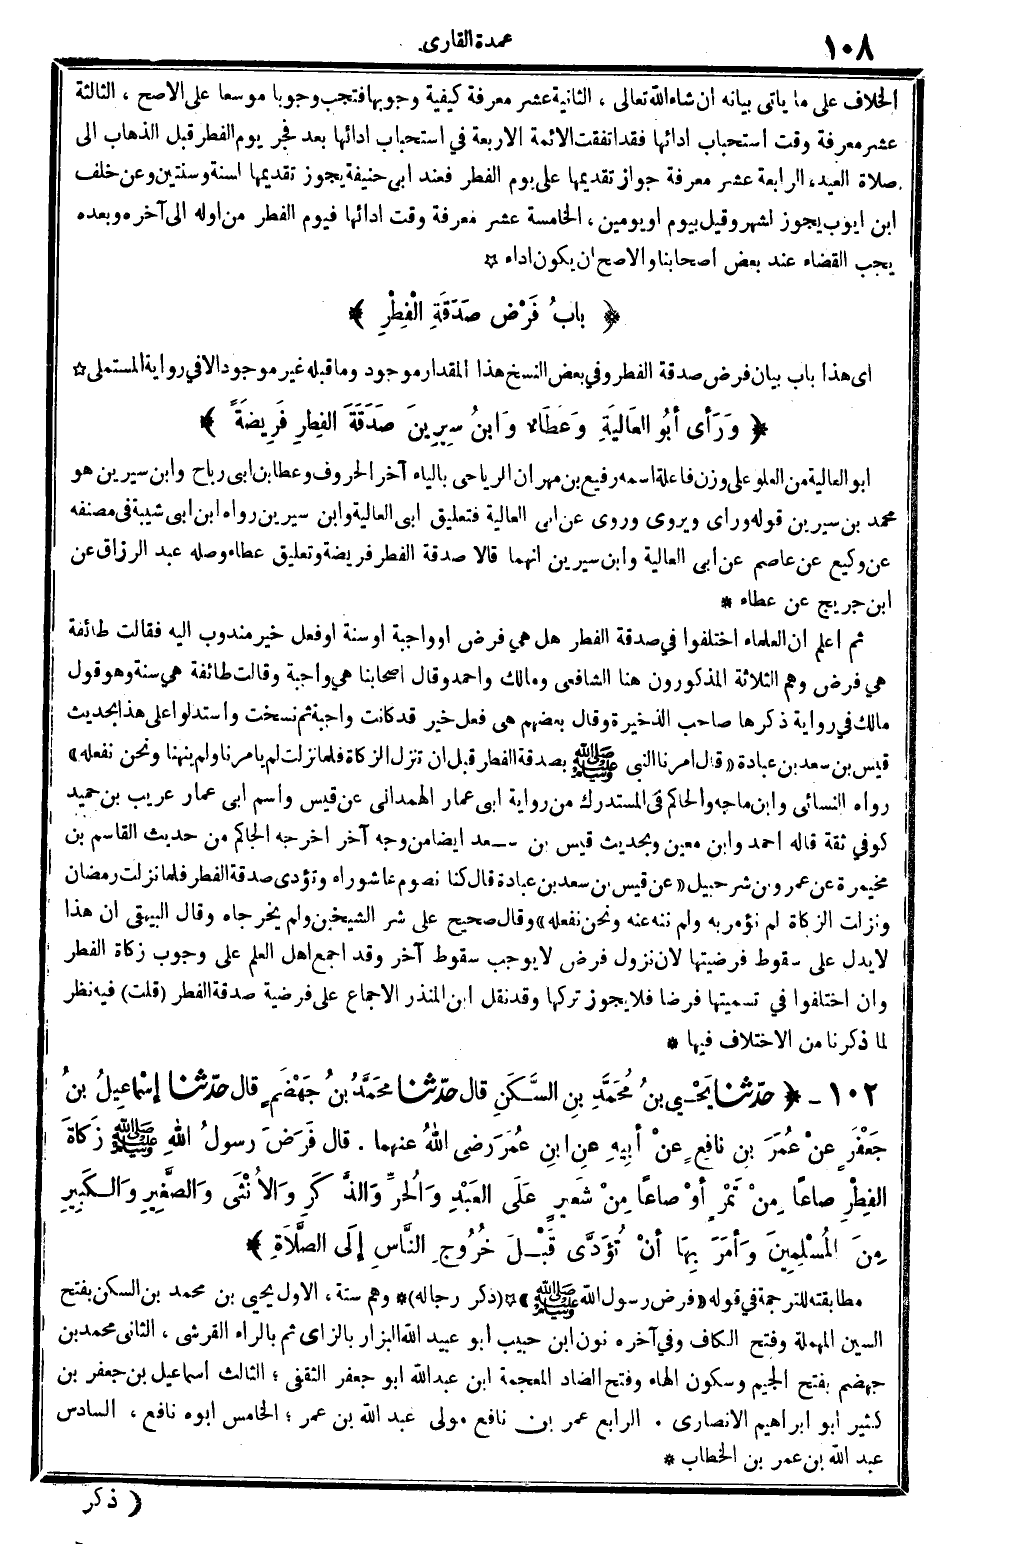 ١٠٨
عمدة القارى
الخلاف على ما ياتى بيانه ان شاء الله تعالى ، الثانية عشر معرفة كيفية وجوبها فتجب وجوبا موسعا على الاصح ، الثالثة
عشر معرفة وقت استحباب ادائها فقد اتفقت الائمة الاربعة في استحباب ادائها بعد فجر يوم الفطر قبل الذهاب الى
صلاة العيد، الرابعة عشر معرفة جواز تقديمها على يوم الفطر فعند ابى حنيفة يجوز تقديمها لسنة وسنتين وعن خلف
ابن ايوب يجوز لشهر وقيل بيوم او يومين ، الخامسة عشر معرفة وقت ادائها فيوم الفطر من اوله الى آخره وبعده
يجب القضاء عند بعض أصحابنا والاصح ان يكون اداء ☆
﴿ بابُ فَرْضِ صَدَقَةِ الْفِطْرِ ﴾
اى هذا باب بيان فرض صدقة الفطر وفي بعض النسخ هذا المقدار موجود وما قبله غير موجود الا في رواية المستملى ☆
﴿ وَرَأى أبُو العَالِيَةِ وَعَطَاءٌ وَابنُ سِيرِينَ صَدَقَةَ الفِطرِ فَرِيضَةً ﴾
ابو العالية من العلو على وزن فاعلة اسمه رفيع بن مهران الرياحى بالياء آخر الحروف وعطا بن ابى رباح وابن سيرين هو
محمد بن سيرين قوله وراى ويروى وروى عن ابى العالية فتعليق ابى العالية وابن سيرين رواه ابن ابى شيبة فى مصنفه
عن وكيع عن عاصم عن أبى العالية وابن سيرين انهما قالا صدقة الفطر فريضة وتعليق عطاء وصله عبد الرزاق عن
ابن جريج عن عطاء *
ثم اعلم ان العلماء اختلفوا في صدقة الفطر هل هي فرض او واجبة او سنة او فعل خير مندوب اليه فقالت طائفة
هي فرض وهم الثلاثة المذكورون هنا الشافعى ومالك واحمد وقال اصحابنا هي واجبة وقالت طائفة هي سنة وهو قول
مالك في رواية ذكرها صاحب الذخيرة وقال بعضهم هى فعل خير قد كانت واجبة ثم نسخت واستدلوا على هذا بحديث
قيس بن سعد بن عبادة «قال امرنا النبى ﷺ بصدقة الفطر قبل ان تنزل الزكاة فلما نزلت لم يامرنا ولم ينهنا ونحن نفعله»
رواه النسائى وابن ماجه والحاكم فى المستدرك من رواية ابى عمار الهمدانى عن قيس واسم ابى عمار عريب بن حميد
كوفي ثقة قاله احمد وابن معين وبحديث قيس بن سعد ايضا من وجه آخر اخرجه الحاكم من حديث القاسم بن
مخيمرة عن عمرو بن شرحبيل «عن قيس بن سعد بن عبادة قال كنا نصوم عاشوراء ونؤدى صدقة الفطر فلما نزلت رمضان
ونزلت الزكاة لم نؤمر به ولم ننه عنه ونحن نفعله» وقال صحيح على شر الشيخين ولم يخرجاه وقال البيهقى ان هذا
لا يدل على سقوط فرضيتها لان نزول فرض لا يوجب سقوط آخر وقد اجمع اهل العلم على وجوب زكاة الفطر
وان اختلفوا في تسميتها فرضا فلا يجوز تركها وقد نقل ابن المنذر الاجماع على فرضية صدقة الفطر (قلت) فيه نظر
لما ذكرنا من الاختلاف فيها *
١٠٢ - ﴿ حدّثنا يَحْيى بنُ مُحَمَّدِ بنِ السَّكَنِ قال حدّثنا محَمَّدُ بنُ جَهْضَمٍ قال حدّثنا إسْماعِيلُ بنُ
جَعْفَرٍ عنْ عُمَرَ بنِ نافِعٍ عنْ أبِيهِ عنِ ابنِ عُمَرَ رضى اللهُ عنهما . قال فَرَضَ رسولُ اللهِ ﷺ زَكاةَ
الفِطْرِ صاعًا مِنْ تَمْرٍ أوْ صاعًا مِنْ شَعِيرٍ عَلَى العَبْدِ وَالحُرِّ وَالذَّكَرِ وَالأُنْثَى وَالصَّغِيرِ وَالكَبِيرِ
مِنَ المُسْلِمِينَ وَأمَرَ بِهَا أنْ تُؤَدَّى قَبْلَ خُرُوجِ النَّاسِ إلَى الصَّلَاةِ ﴾
مطابقته للترجمة في قوله «فرض رسول الله ﷺ» ☆ (ذكر رجاله) * وهم ستة، الاول يحيى بن محمد بن السكن بفتح
السين المهملة وفتح الكاف وفي آخره نون ابن حبيب أبو عبيد الله البزار بالزاى ثم بالراء القرشى ، الثانى محمد بن
جهضم بفتح الجيم وسكون الهاء وفتح الضاد المعجمة ابن عبد الله ابو جعفر الثقفى ؛ الثالث أسماعيل بن جعفر بن
كثير ابو ابراهيم الانصارى . الرابع عمر بن نافع مولى عبد الله بن عمر ؛ الخامس ابوه نافع ، السادس
عبد الله بن عمر بن الخطاب *
( ذكر